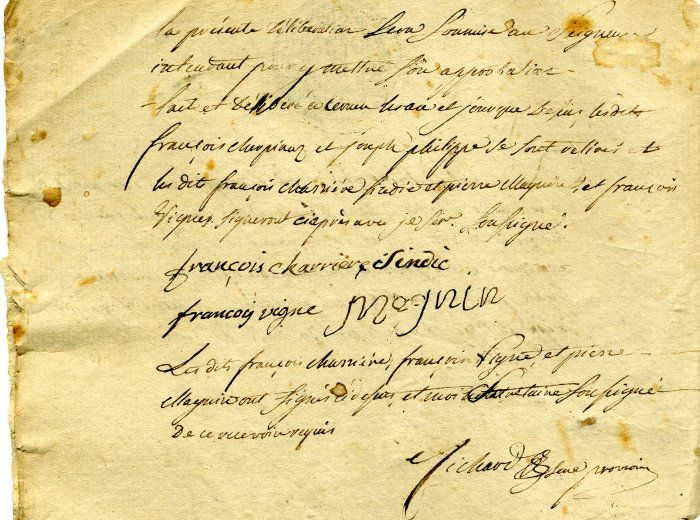 la présente Délibération Sera Soumise au Seigneur
intendant pour y mettre Son approbation
fait et Délibéré a Cerneu les an et jour que Depuis, les dits
françois cherpinaz et joseph philippe Se Sont retirés et
les dits françois charriere Sindic et pierre Magnin, et françois
Vigne, Signeront ciaprès avec je Soussigné.
françois charriere Sindic
françoy vigne Magnin
Les dits françois charriere, françois Vigne, et pierre
Magnin ont Signés cidessus, et moi Secretaire Soussigné
De ce recevoir requis
Richard